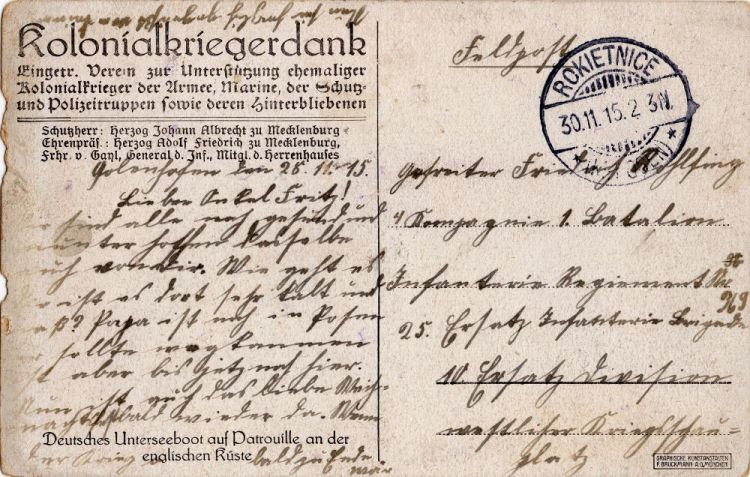 Kolonialkriegerdank
Eingetr. Verein zur Unterstützung ehemaliger
Kolonialkrieger der Armee, Marine, der Schutz-
und Polizeitruppen sowie deren Hinterbliebenen
Schutzherr: Herzog Johann Albrecht zu Mecklenburg
Ehrenpräs.: Herzog Adolf Friedrich zu Mecklenburg
Frhr. v. Gayl, General d. Inf., Mitgl. d. Herrenhauses
Golenhofen den 28. 11. 15.
Lieber Onkel Fritz!
sind alle noch gesund und
munter hoffen dasselbe
auch von dir. Wie geht es
ist es dort sehr kalt und
Papa ist noch in Posen
sollte wegkommen
aber bis jetz noch hier.
Nun ist auch das liebe Weih-
nachts bald wieder da. Wenn
der Krieg bald zu Ende
wär
Deutsches Unterseeboot auf Patrouille an der
englischen Küste
Feldpost
ROKIETNICE
30.11.15. 2-3N.
Gefreiter Friedrich Rohlfing
4 Kompagnie 1. Batalion
Infanterie Regiement Nr
369
25. Ersatz Infanterie Brigade
10. Ersatz Division
westlicher Kriegsschau-
platz
GRAPHISCHE KUNSTANSTALTEN
F. BRUCKMANN A.G. MÜNCHEN